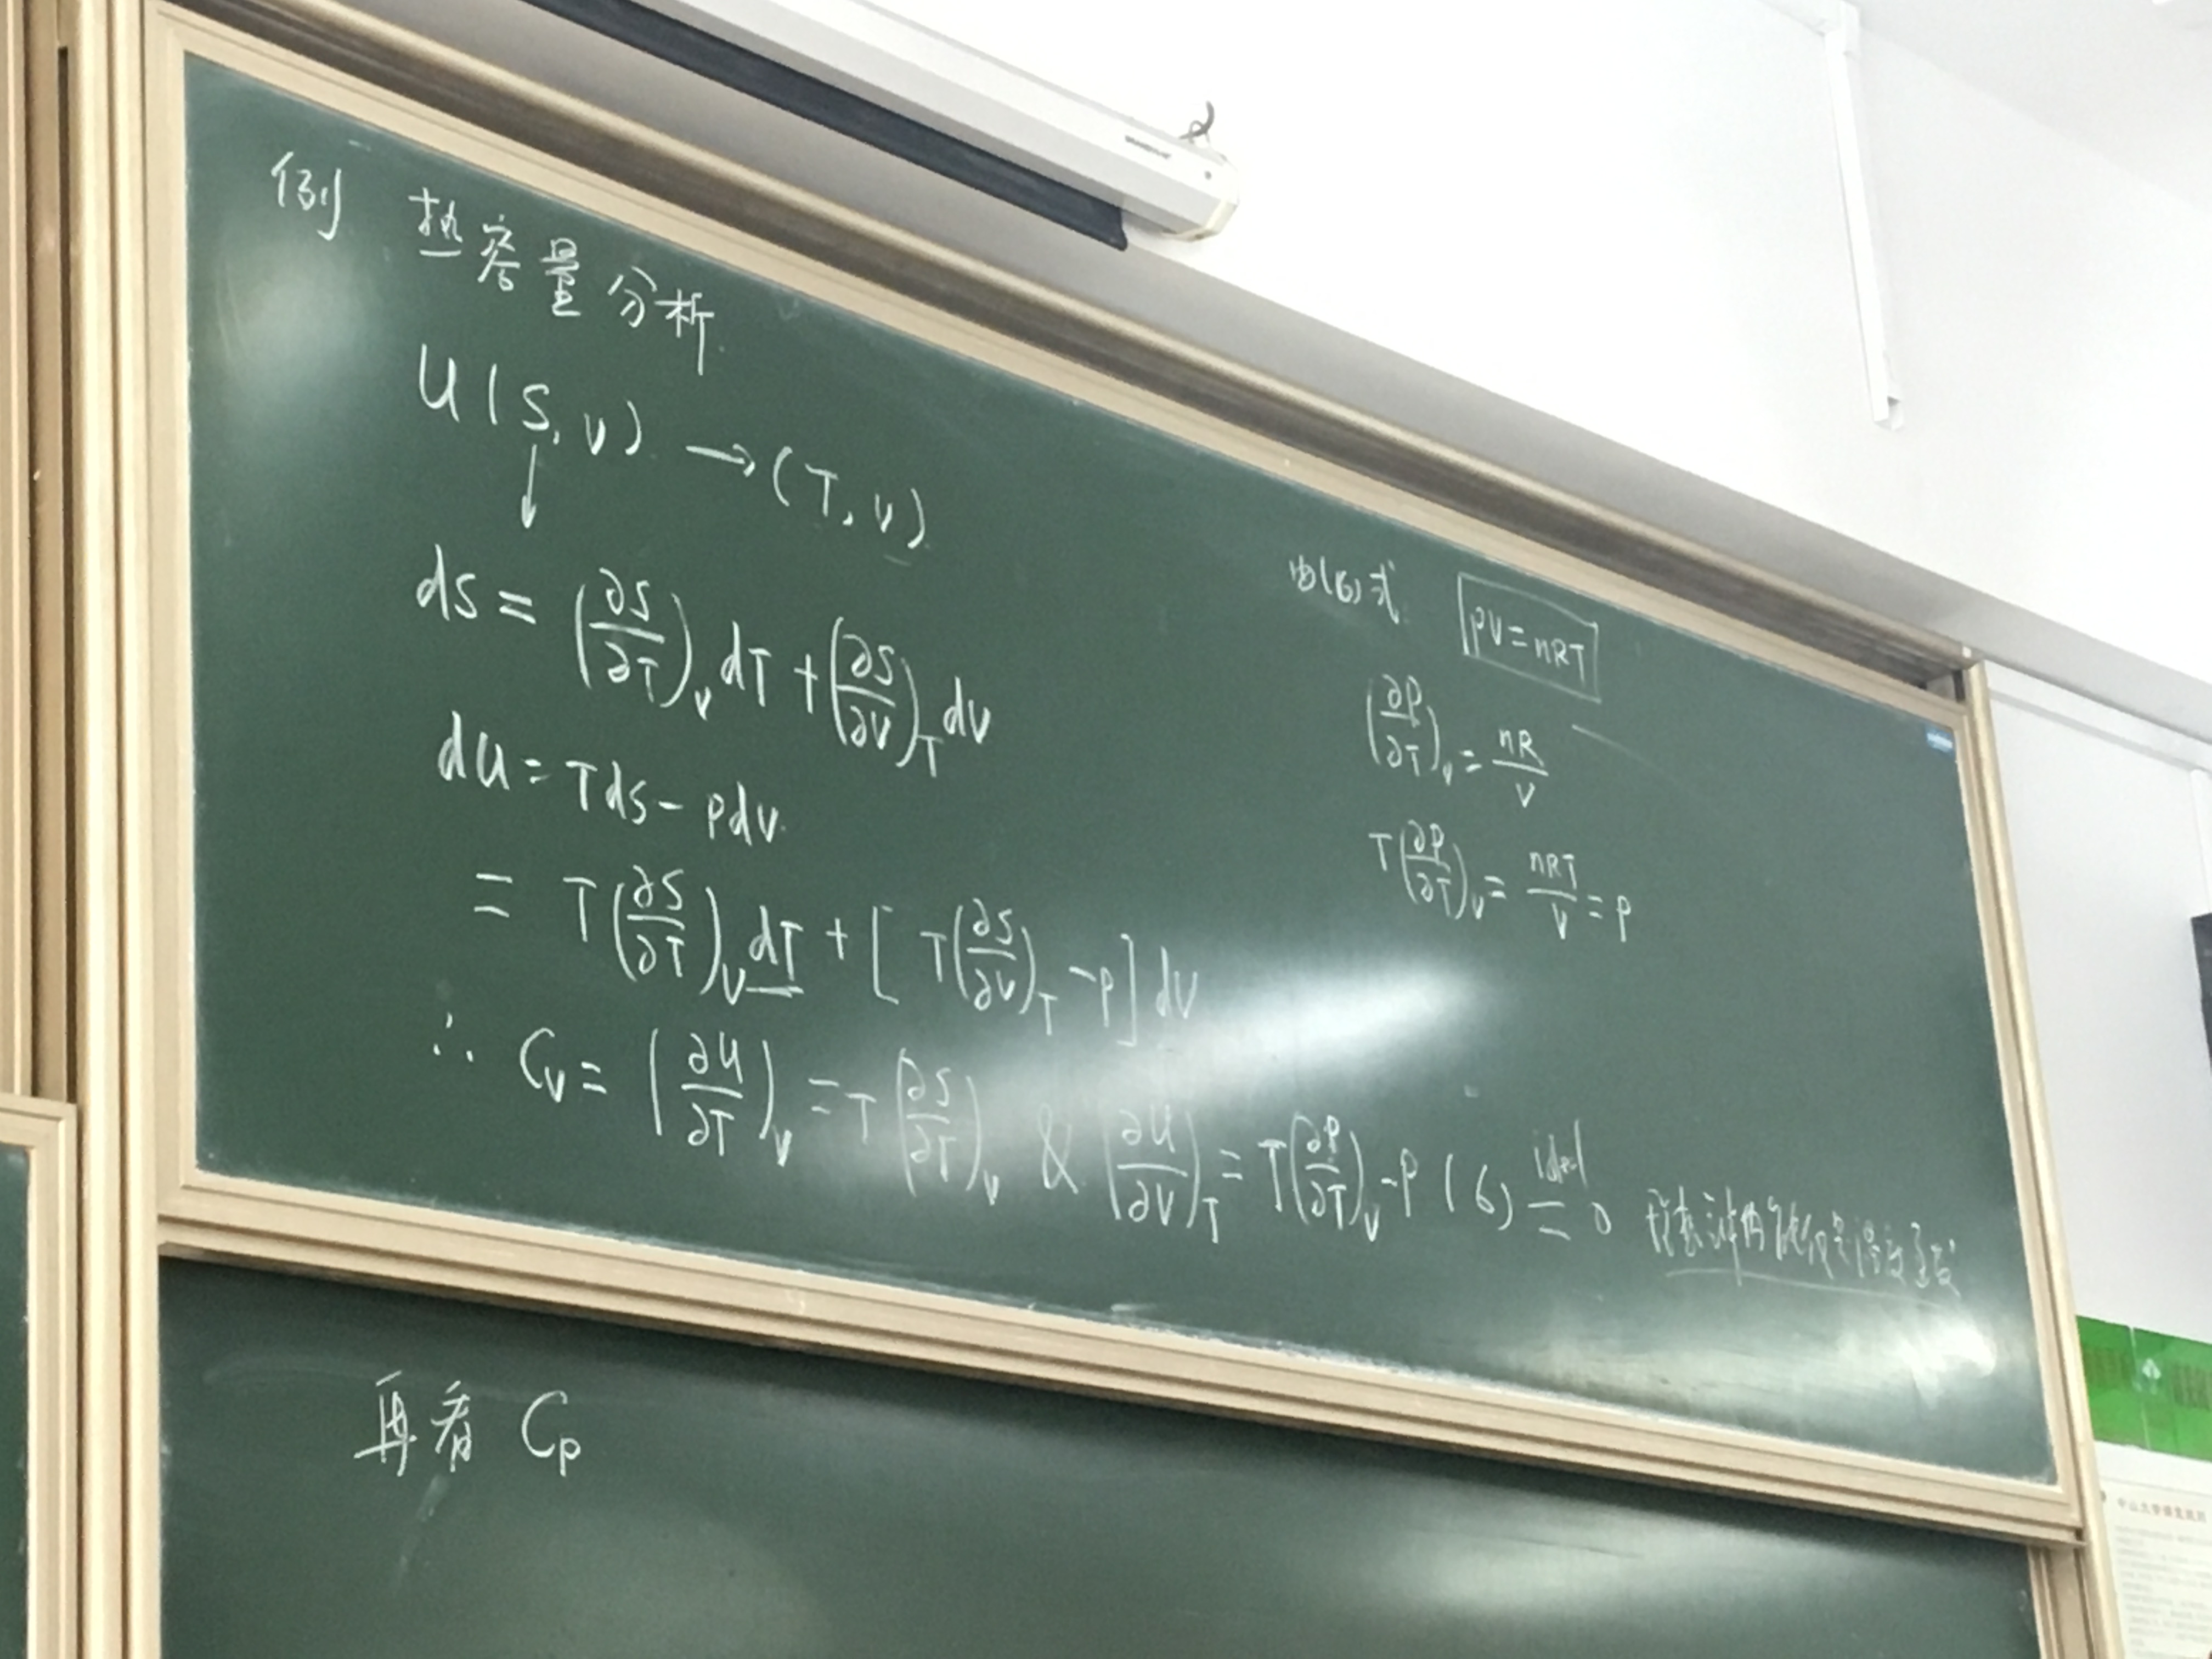 例 热容量分析
U(S,V) → (T,V)
↓
dS = (∂S/∂T)_V dT + (∂S/∂V)_T dV
dU = TdS - pdV
= T(∂S/∂T)_V dT + [T(∂S/∂V)_T - p] dV
∴ C_V = (∂U/∂T)_V = T(∂S/∂T)_V & (∂U/∂V)_T = T(∂P/∂T)_V - P (6) =^{ideal} 0
由(6)式 pV=nRT
(∂P/∂T)_V = nR/V
T(∂P/∂T)_V = nRT/V = P
再看 Cp